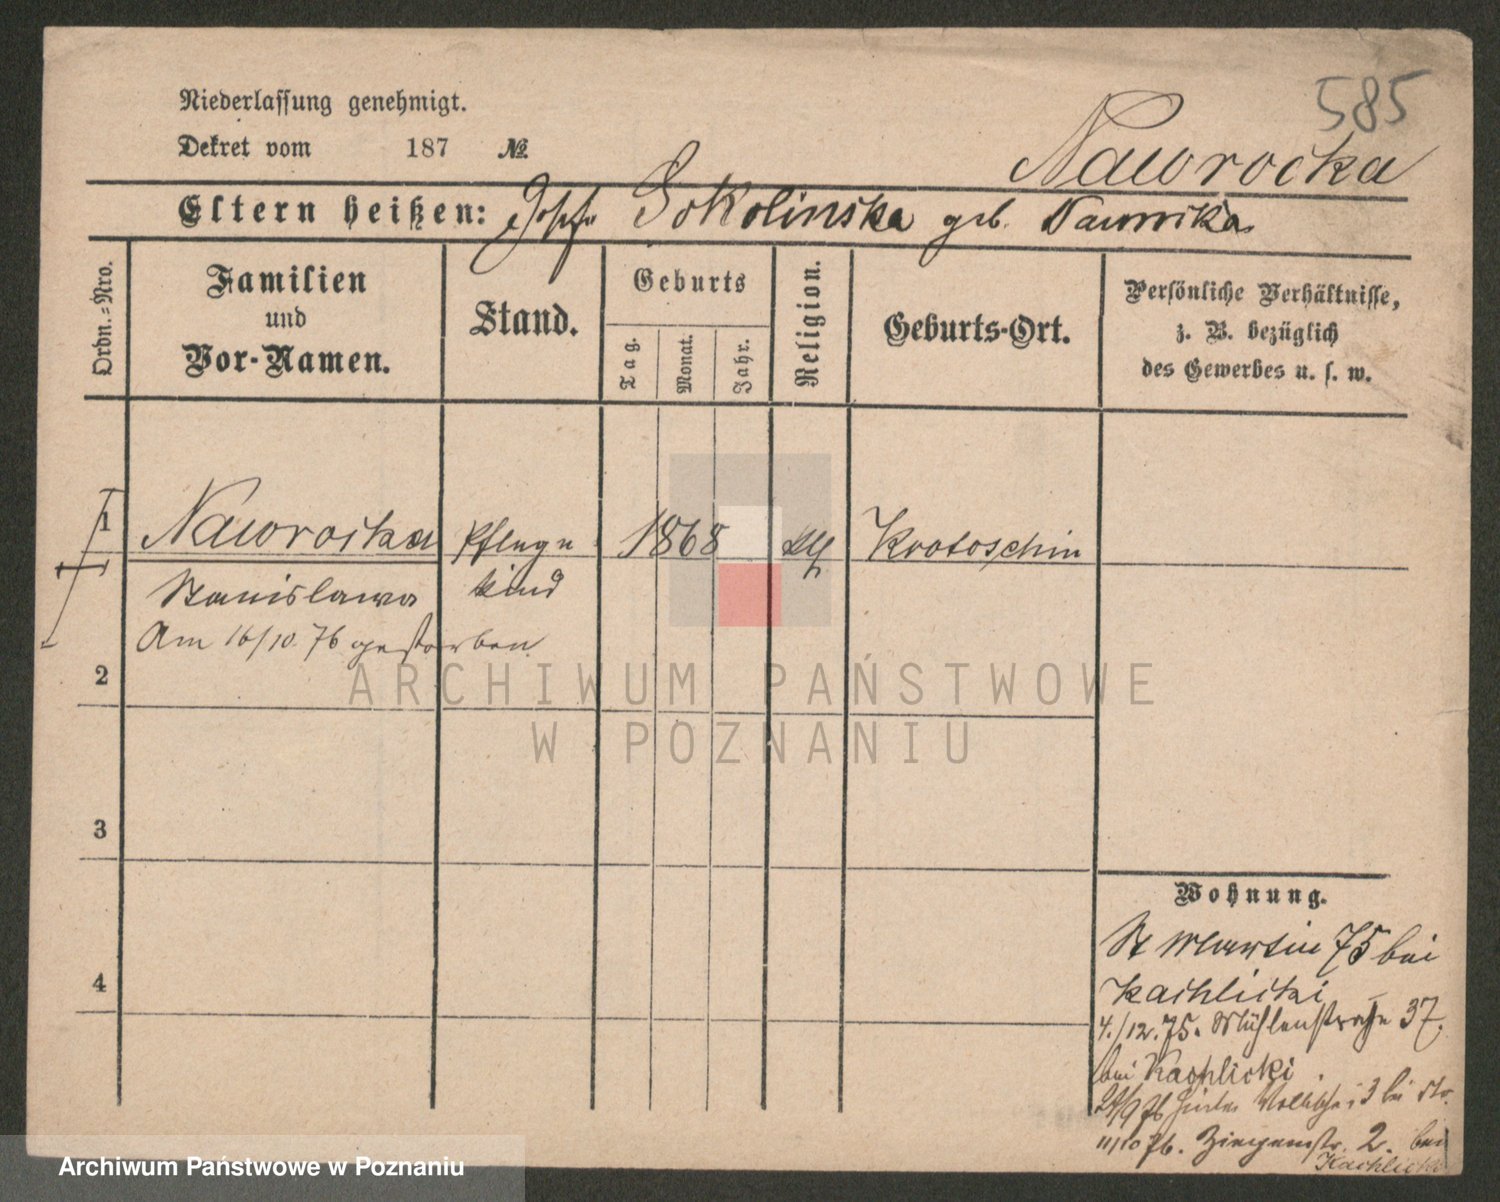 585
Niederlassung genehmigt.
Dekret vom 187 №
Nawrocka
Eltern heißen: Josefa Sokolinska geb. Nawrocka
Ordn.-Nro.
Familien
und
Vor-Namen.
Stand.
Geburts
Tag.
Monat.
Jahr.
Religion.
Geburts-Ort.
Persönliche Verhältnisse,
z. B. bezüglich
des Gewerbes u. s. w.
1 Nawrocka Pflege 1868 kth Krotoschin
Stanislawa kind
Am 16/10. 76 gestorben.
2
3
4
Wohnung.
St Martin 75 bei
Kachlicki
4./12. 75. Mühlenstraße 37.
bei Kachlicki
29/9 76 Hinter Wallische 3 bei
11/10 76. Ziegenstr. 2. bei
Kachlicki
ARCHIWUM PAŃSTWOWE
W POZNANIU
Archiwum Państwowe w Poznaniu